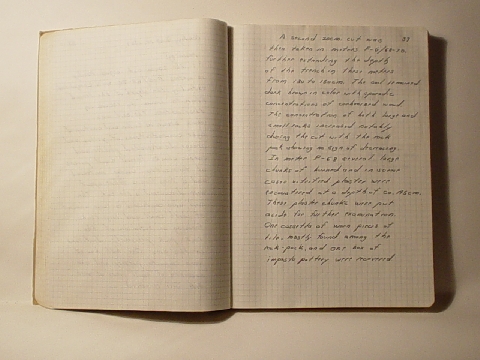 A second 20cm cut was 33
then taken in meters F-6/68-72
further extending the depth
of the trench in these meters
from 120 to 140cm. The soil remained
dark brown in color with sporadic
concentrations of carbonized wood.
The concentration of both large and
small rocks increased notably
during the cut with the rock
pack showing no sign of diminishing.
In meter F-68 several large
chunks of burned and in some
cases vitrified plaster were
encountered at a depth of
These plaster chunks were put
aside for further examination.
One cassetta of worn pieces of
tile, mostly found among the
rock-pack, and one box of
impasto pottery were recovered